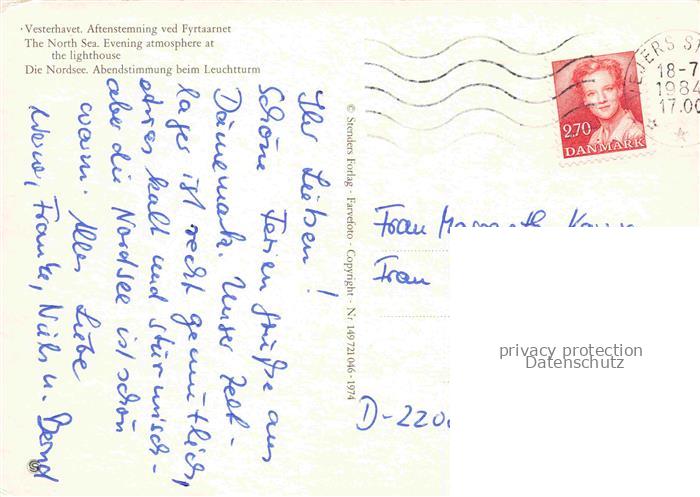 Vesterhavet. Aftenstemning ved Fyrtaarnet
The North Sea. Evening atmosphere at
the lighthouse
Die Nordsee. Abendstimmung beim Leuchtturm
Ihr Lieben!
Schöne Feriengrüße aus
Dänemark. Unser Zelt-
lager ist recht gemütlich,
etwas kalt und stürmisch -
aber die Nordsee ist schön
warm. Alles Liebe
Frauke, Niels u. Bernd
© Stenders Forlag - Farvefoto - Copyright - Nr 149 721 046 - 1974
18-7
1984
17.00
2.70
DANMARK
Frau
Frau
D-220
privacy protection
Datenschutz